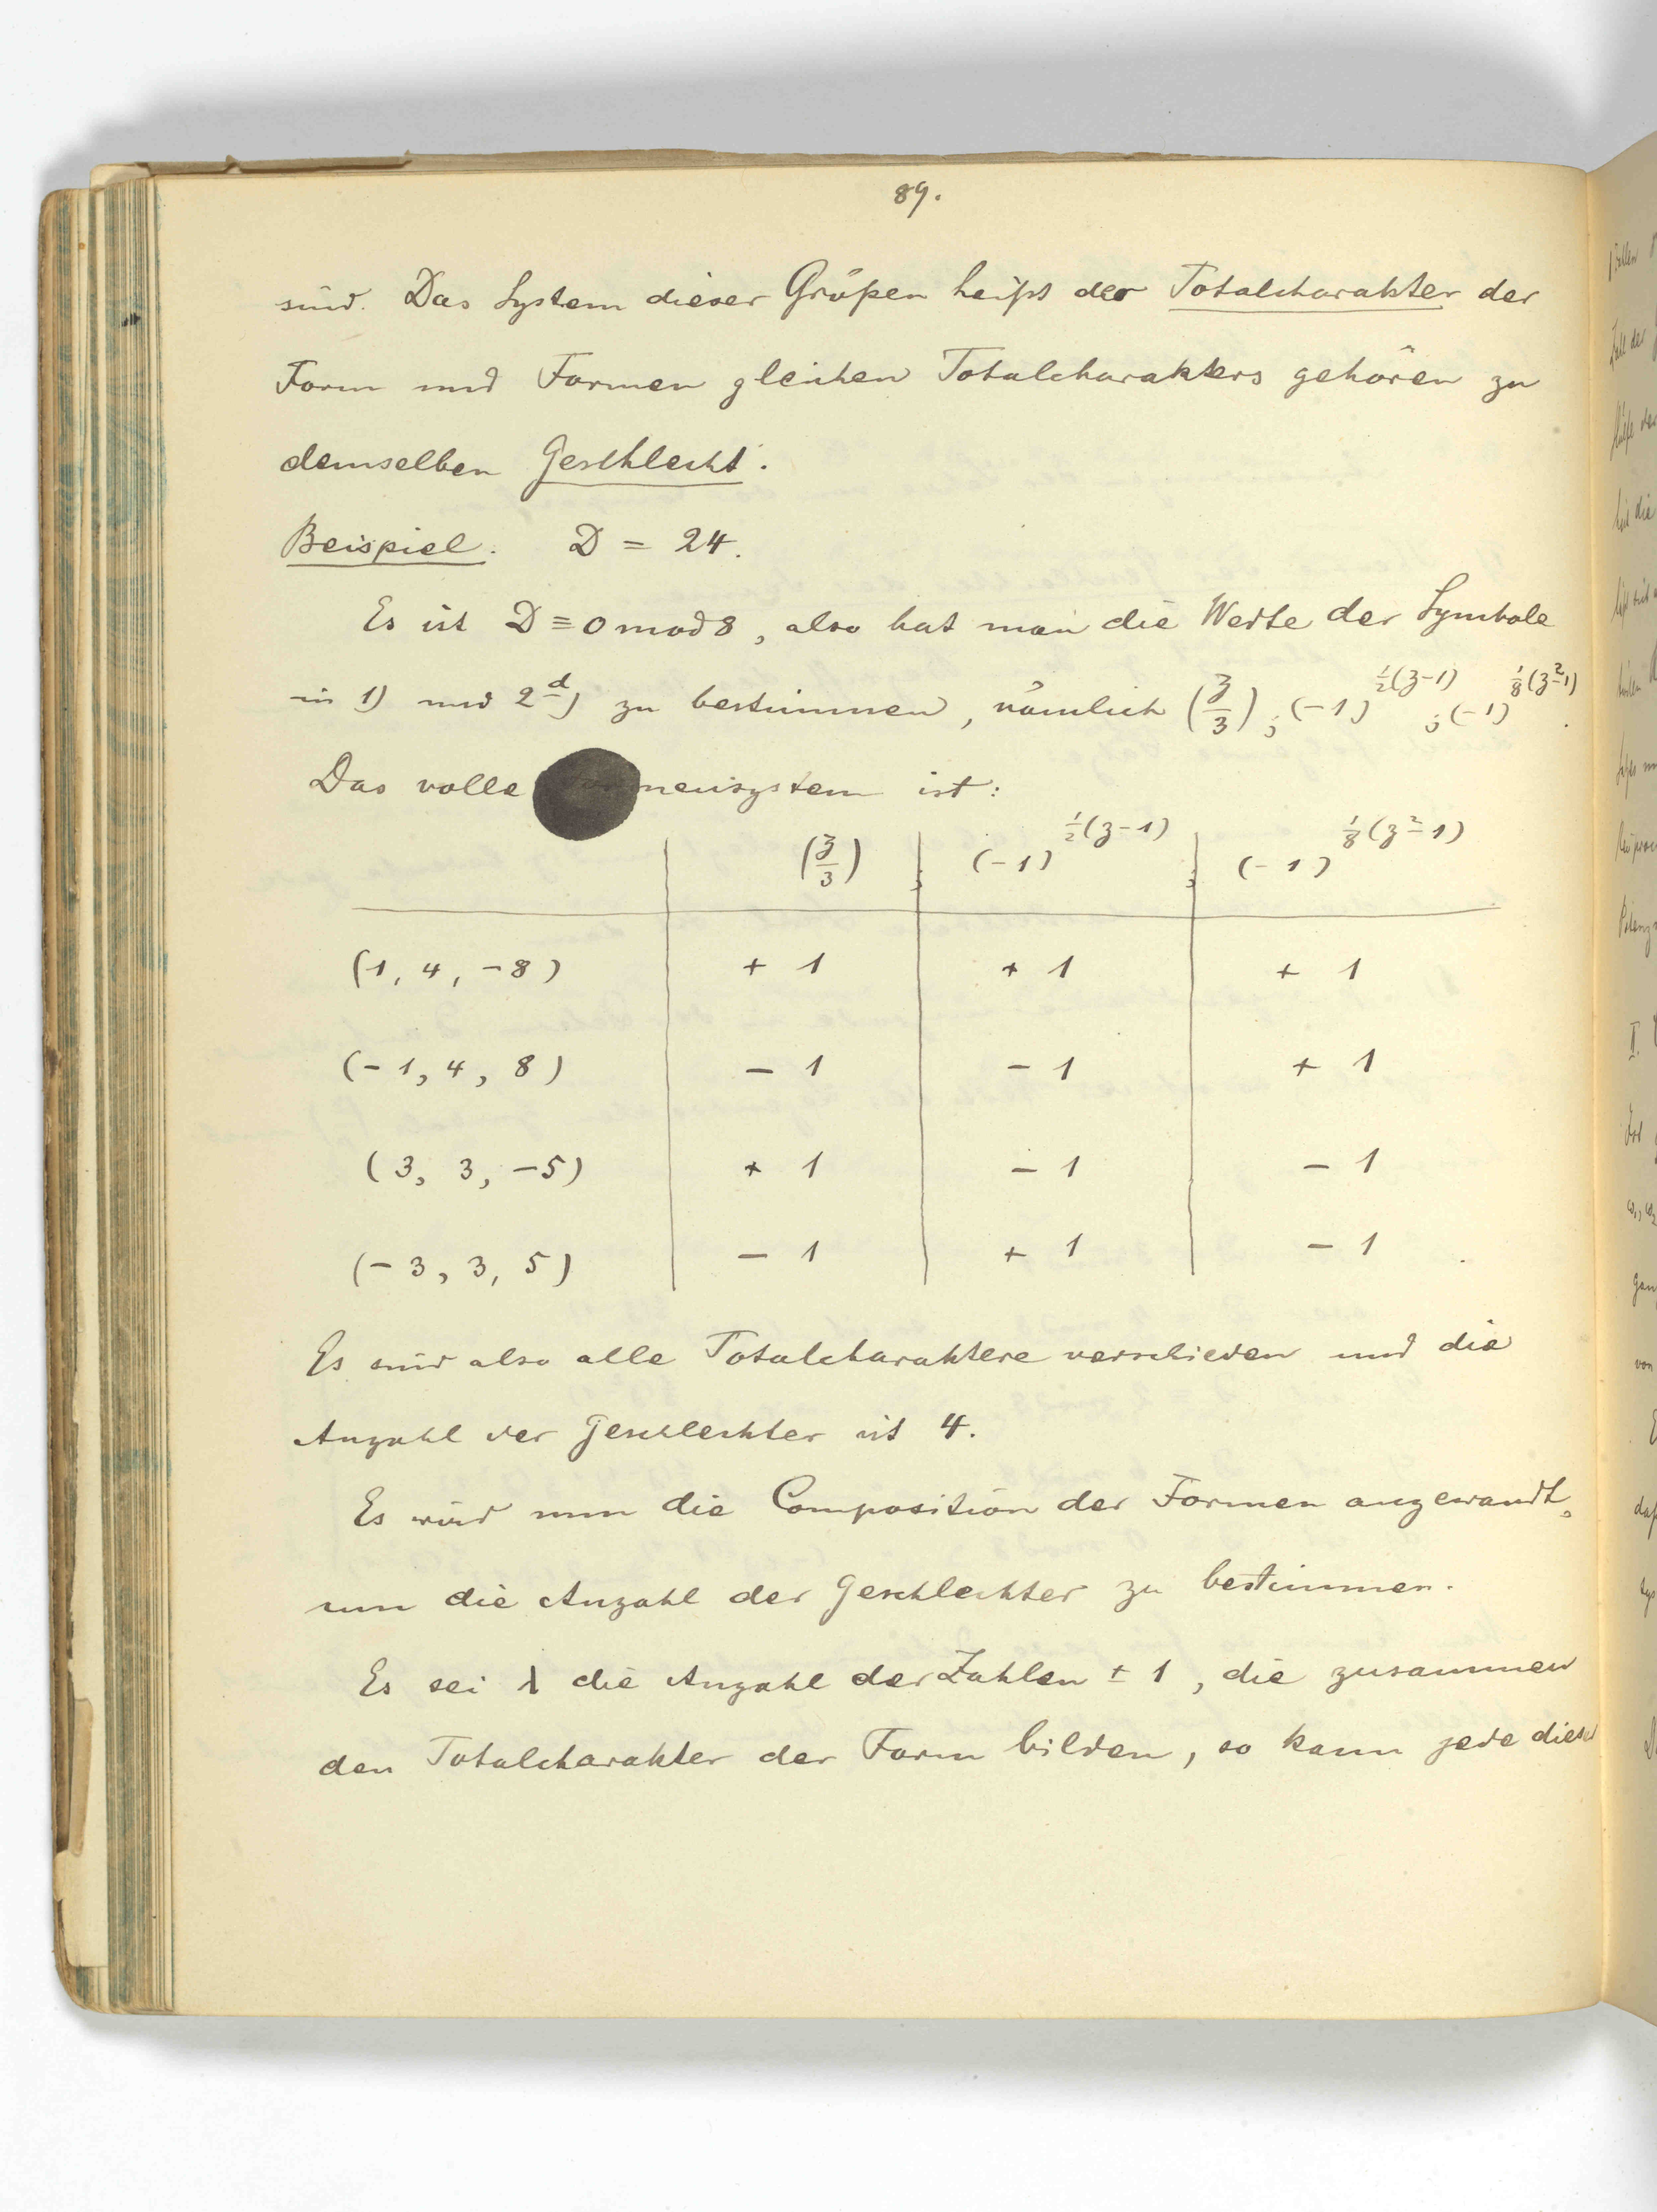 89.
sind. Das System dieser Größen heißt der Totalcharakter der
Form und Formen gleichen Totalcharakters gehören zu
demselben Geschlecht.
Beispiel. D = 24.
Es ist D ≡ 0 mod 8, also hat man die Werte der Symbole
in 1) und 2 d) zu bestimmen, nämlich (z/3); (-1)^{½(z-1)}; (-1)^{⅛(z²-1)}.
Das volle nensystem ist:
(z/3) ; (-1)^{½(z-1)} ; (-1)^{⅛(z²-1)}
(1, 4, -8) + 1 + 1 + 1
(-1, 4, 8) - 1 - 1 + 1
(3, 3, -5) + 1 - 1 - 1
(-3, 3, 5) - 1 + 1 - 1
Es sind also alle Totalcharaktere verschieden und die
Anzahl der Geschlechter ist 4.
Es wird nun die Composition der Formen angewandt,
um die Anzahl der Geschlechter zu bestimmen.
Es sei λ die Anzahl der Zahlen ± 1, die zusammen
den Totalcharakter der Form bilden, so kann jede dieser